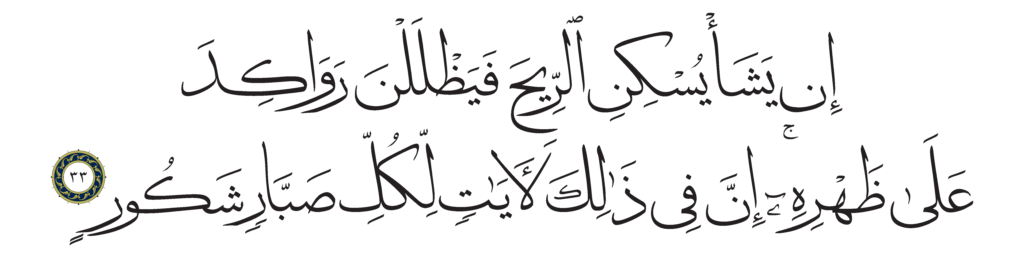 إِن يَشَأْ يُسْكِنِ ٱلرِّيحَ فَيَظْلَلْنَ رَوَاكِدَ
عَلَىٰ ظَهْرِهِۦٓ ۚ إِنَّ فِى ذَٰلِكَ لَـَٔايَـٰتٍ لِّكُلِّ صَبَّارٍ شَكُورٍ ٣٣